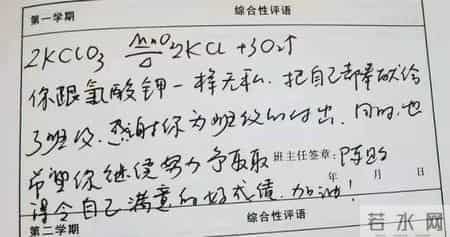 第一学期
综合性评语
2KClO3 MnO2 △ 2KCl + 3O2↑
你跟氯酸钾一样无私. 把自己都奉献给
了班级. 感谢你为班级的付出. 同时, 也
希望你继续努力争取取 班主任签章:
年 月 日
得令自己满意的好成绩. 加油!
第二学期
综合性评语
若水网